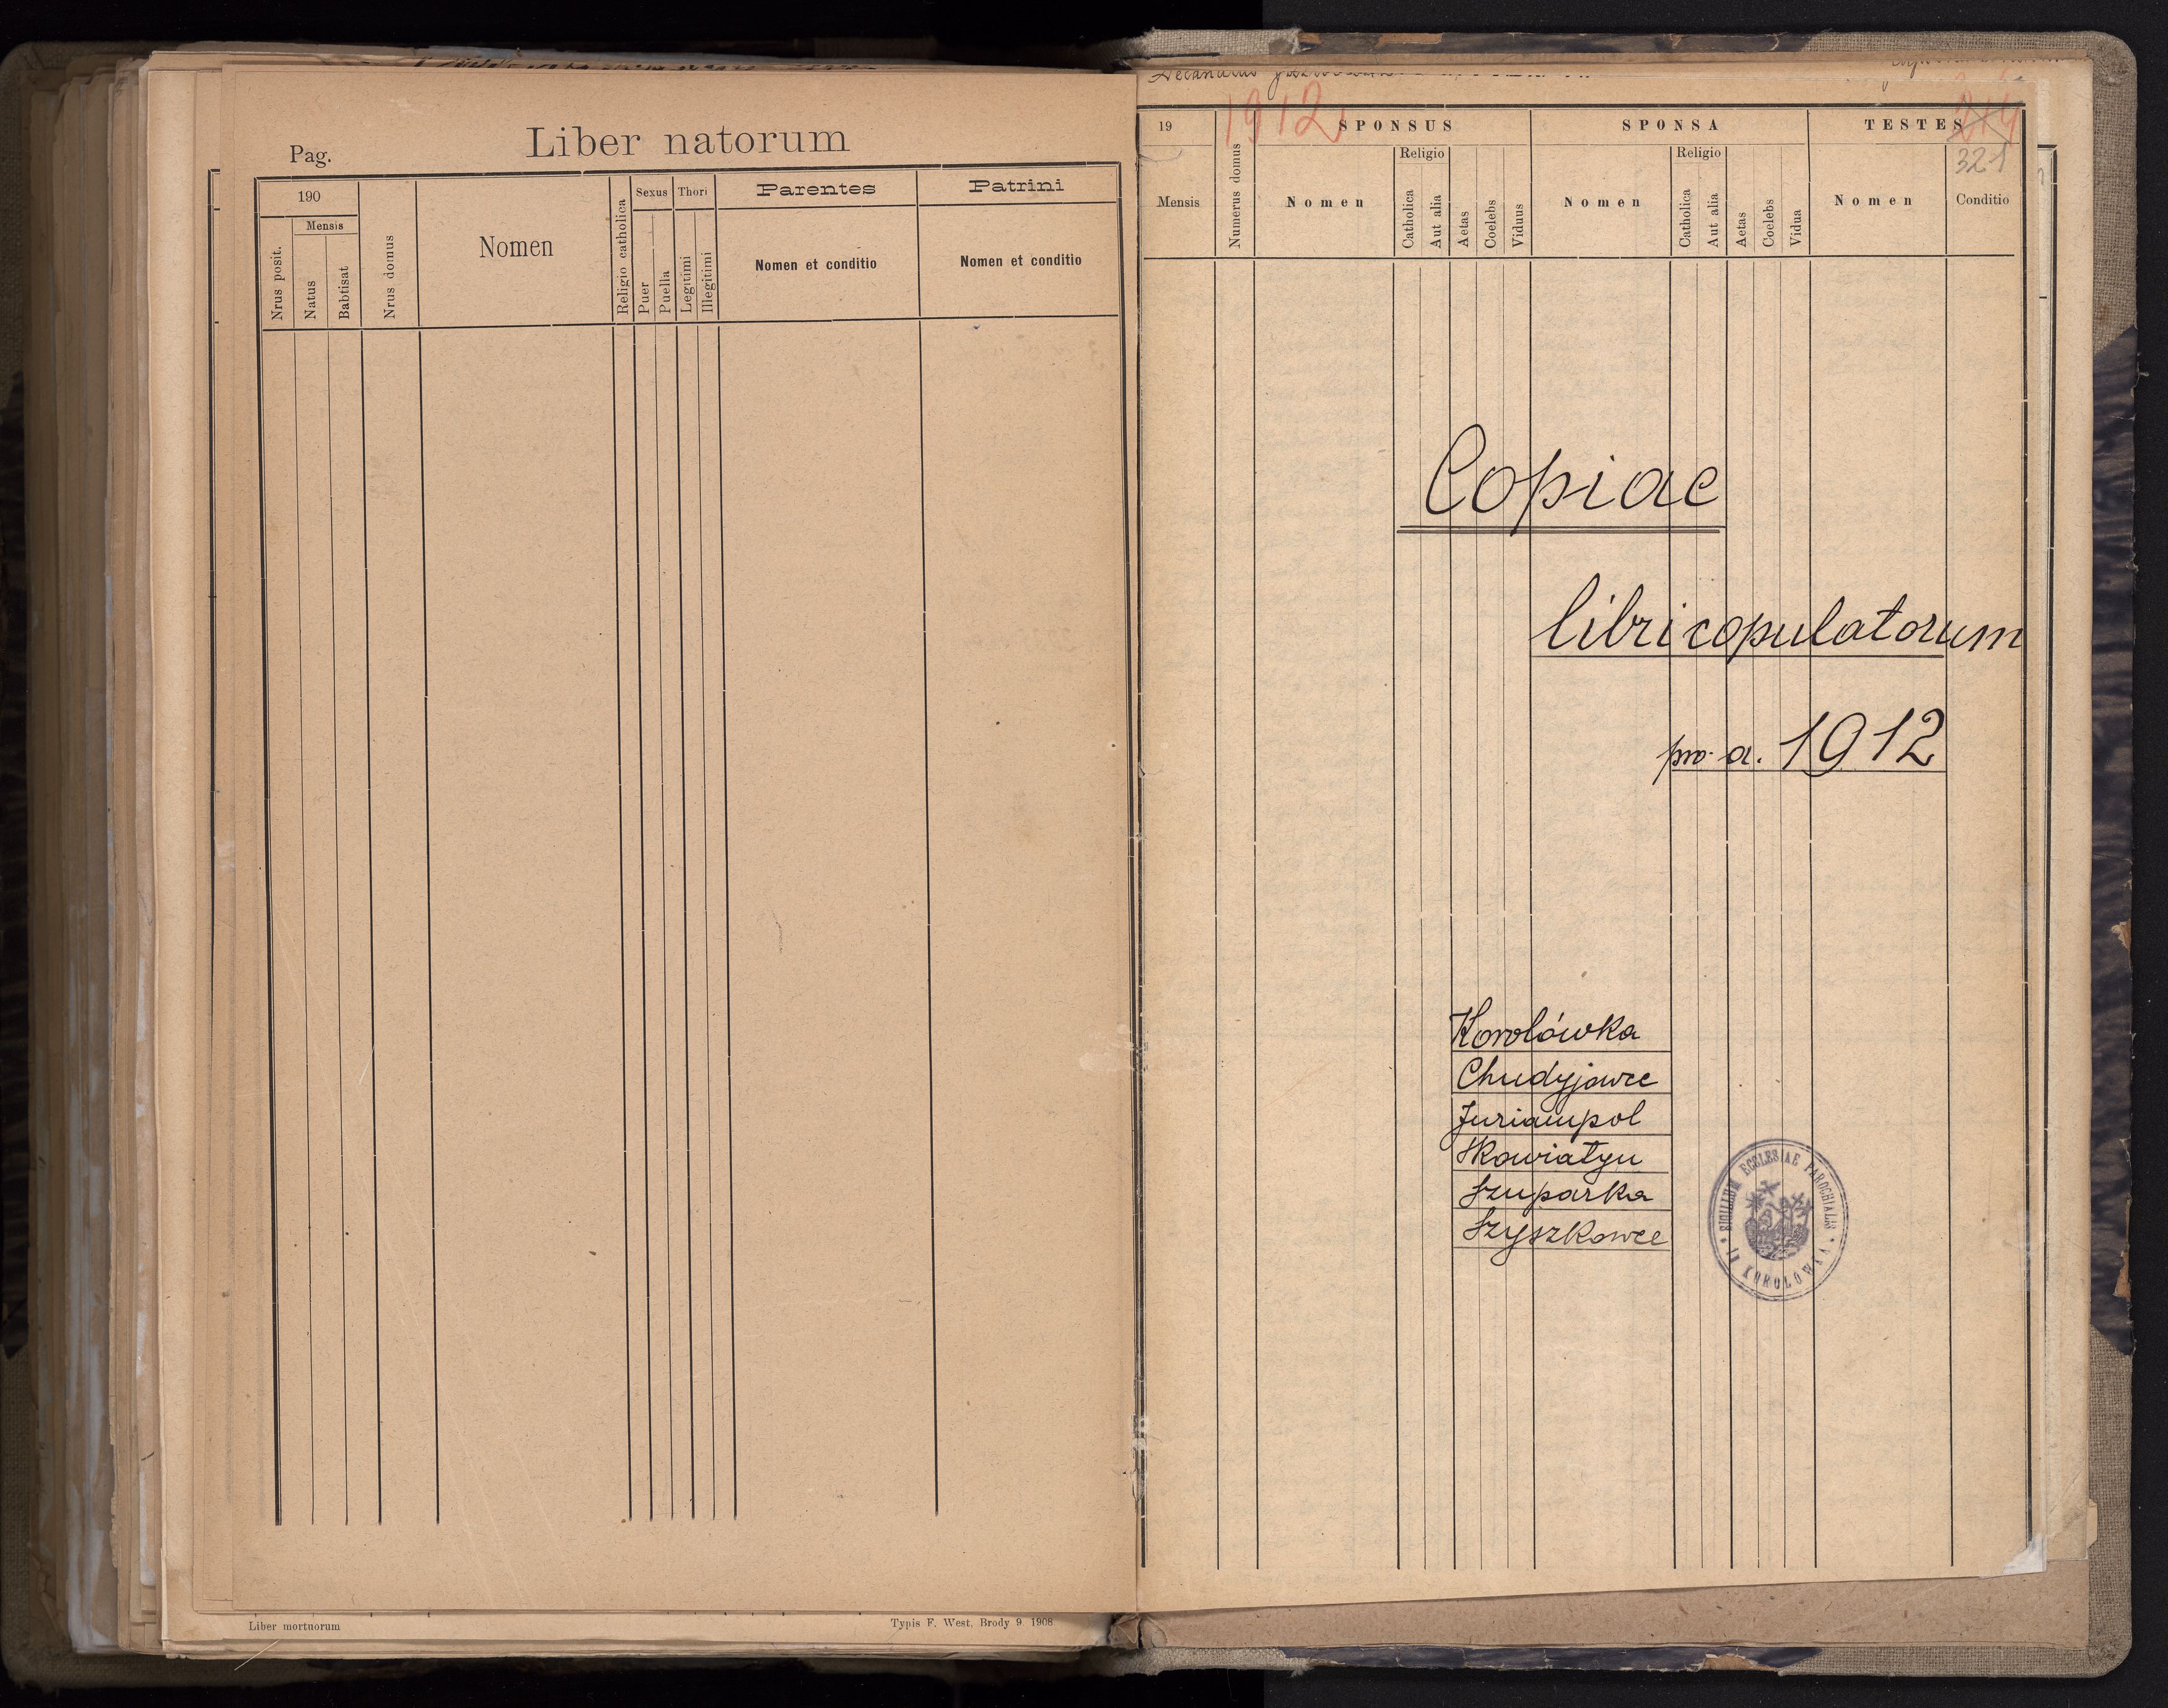 Pag.
Liber natorum
190
Mensis
Nrus posit.
Natus
Babtisat
Nrus domus
Nomen
Religio catholica
Sexus
Puer
Puella
Thori
Legitimi
Illegitimi
Parentes
Nomen et conditio
Patrini
Nomen et conditio
Liber mortuorum
Typis F. West, Brody 9 1908
Decanatus
1912
19
Mensis
Numerus domus
SPONSUS
Nomen
Religio
Catholica
Aut alia
Aetas
Coelebs
Viduus
SPONSA
Nomen
Religio
Catholica
Aut alia
Aetas
Coelebs
Vidua
TESTES
Nomen
321
Conditio
Copiae
libri copulatorum
pro a. 1912
Korolówka
Chudyjowce
Juriampol
Skowiatyn
Szuparka
Szyszkowce
SIGILLUM ECCLESIAE PAROCHIALIS
KOROLÓWKA